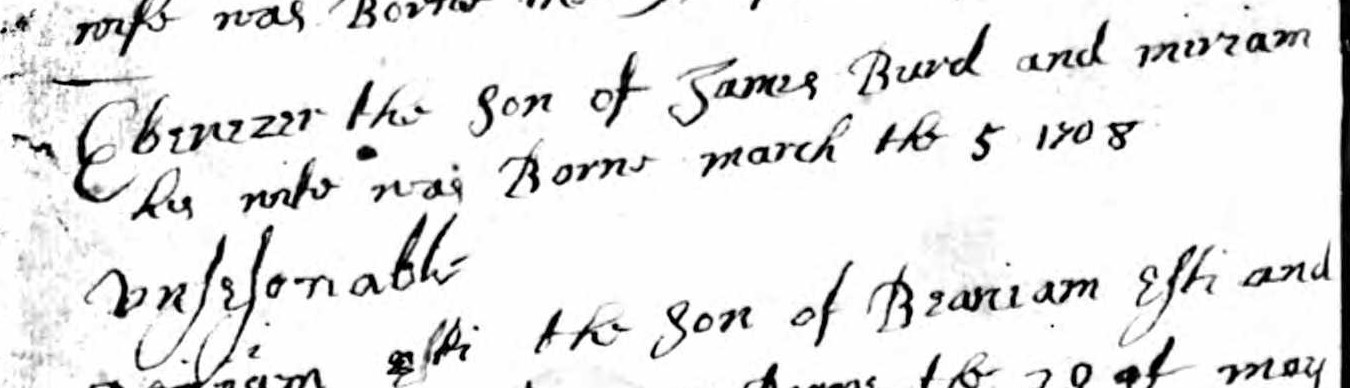 wife was Borne the
Ebenezer the Son of James Burd and miriam
his wife was Borne march the 5 1708
vnsesonable
esti the Son of Beaniam Esti and
the 20 of may